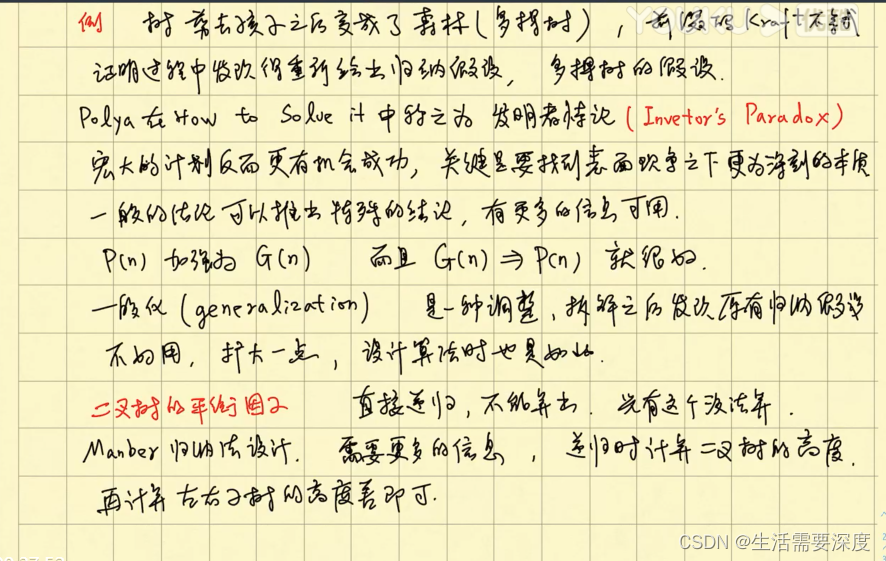 例 树 剪去孩子之后变成了森林(多棵树), 前缀码 Kraft不等式
证明过程中发现得重新给出归纳假设, 多棵树的假设.
Polya在How to Solve it中称之为 发明者悖论 (Invetor's Paradox)
宏大的计划反而更有机会成功, 关键是要找到表面现象之下更为深刻的本质
一般的结论可以推出特殊的结论, 有更多的信息可用.
P(n) 加强为 G(n) 而且 G(n) ⇒ P(n) 就很好.
一般化 (generalization) 是一种调整, 拆解之后发现原有归纳假设
不好用, 扩大一点, 设计算法时也是如此.
二叉树的平衡因子 直接递归, 不能算出. 光有这个没法算.
Manber 归纳法设计. 需要更多的信息, 递归时计算二叉树的高度.
再计算左右子树的高度差即可.
CSDN @生活需要深度